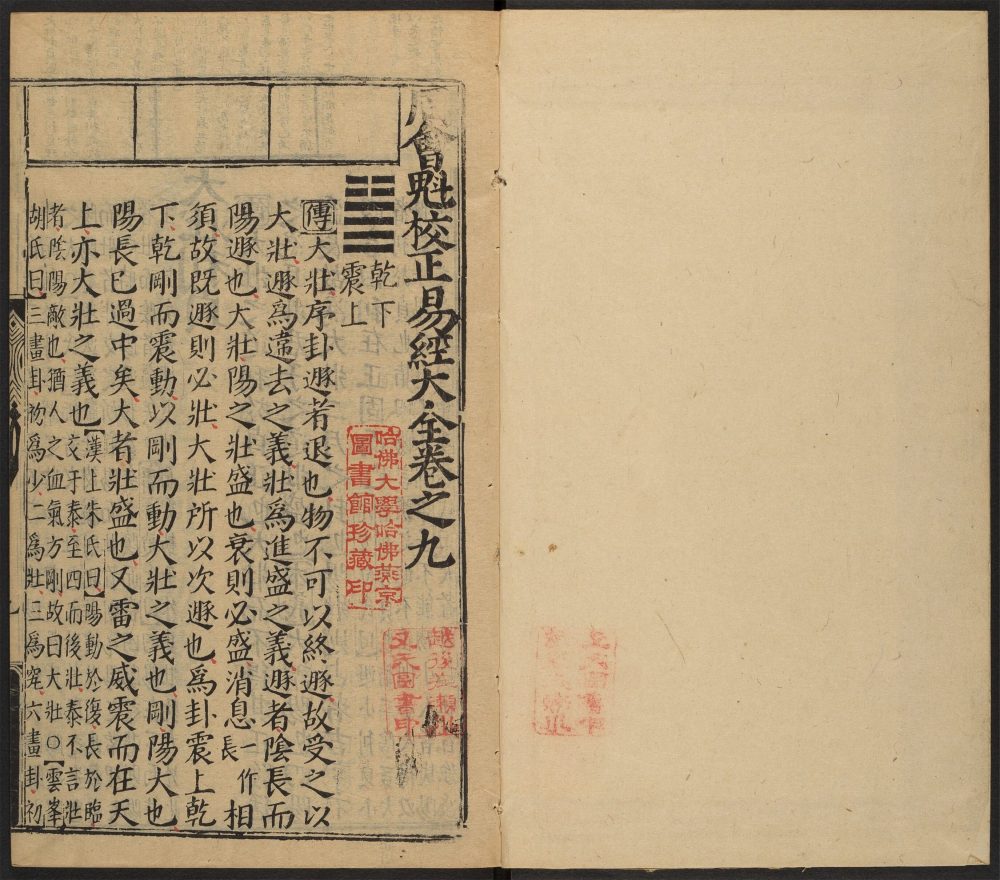 會魁校正易經大全卷之九
乾下
震上
傳大壯序卦遯者退也物不可以終遯故受之以
大壯遯爲違去之義壯爲進盛之義遯者陰長而
陽遯也大壯陽之壯盛也衰則必盛消息一作長相
須故既遯則必壯大壯所以次遯也爲卦震上乾
下乾剛而震動以剛而動大壯之義也剛陽大也
陽長已過中矣大者壯盛也又雷之威震而在天
上亦大壯之義也
漢上朱氏曰陽動於復長於臨
交于泰至四而後壯泰不言壯
者陰陽敵也猶人之血氣方剛故曰大壯○雲峯
胡氏曰三畫卦初爲少二爲壯三爲究六畫卦初
哈佛大學哈佛燕京
圖書館珍藏印
圖書印